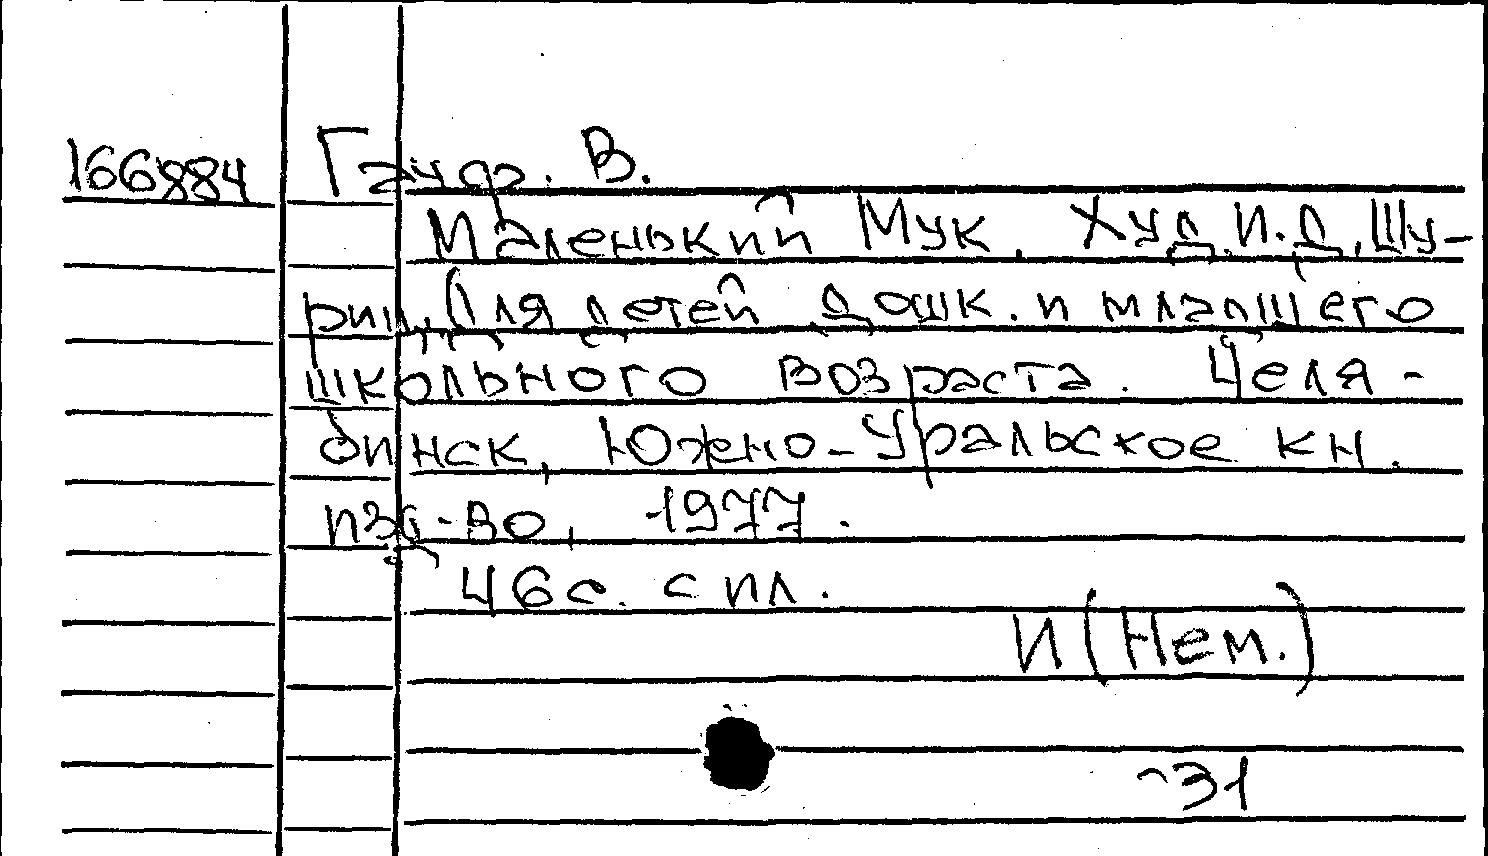 166884 Гауф. В.
Маленький Мук. Худ. И. Д. Шу-
рин. Для детей дошк. и младшего
школьного возраста. Челя-
бинск, Южно-Уральское кн.
изд-во, 1977.
46с. с ил.
И (Нем.)
31